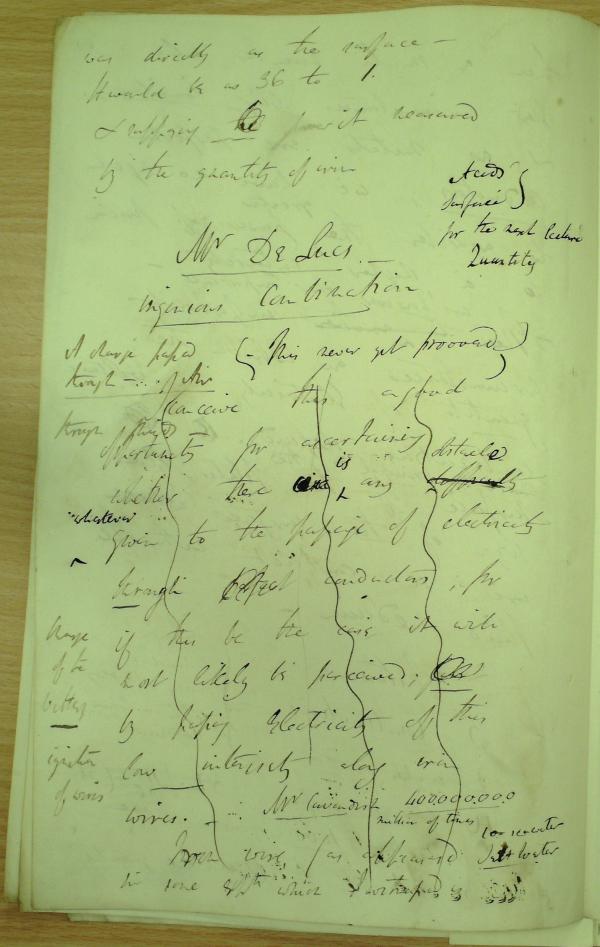 was directly as the surface -
It would be as 36 to 1.
& supposing the power it measured
by the quantity of iron
Acids
surface
for the next lecture
Quantity
Mr De Lucs -
ingenious Combination
A charge passed
through - Air
through
(- This never yet prooved)
conceive this a good
opportunity for ascertaining
obstacle
whether there is any difficulty
"whatever"
given to the passage of electricity
through conductors, for
if this be the case it will
most likely be perceived;
by passing Electricity of this
low intensity along iron
wires. - Mr Cavendish 400,000,000
million of times
Charge
of the
battery
ignition
of wires
Iron wire (as
salt water
in some which